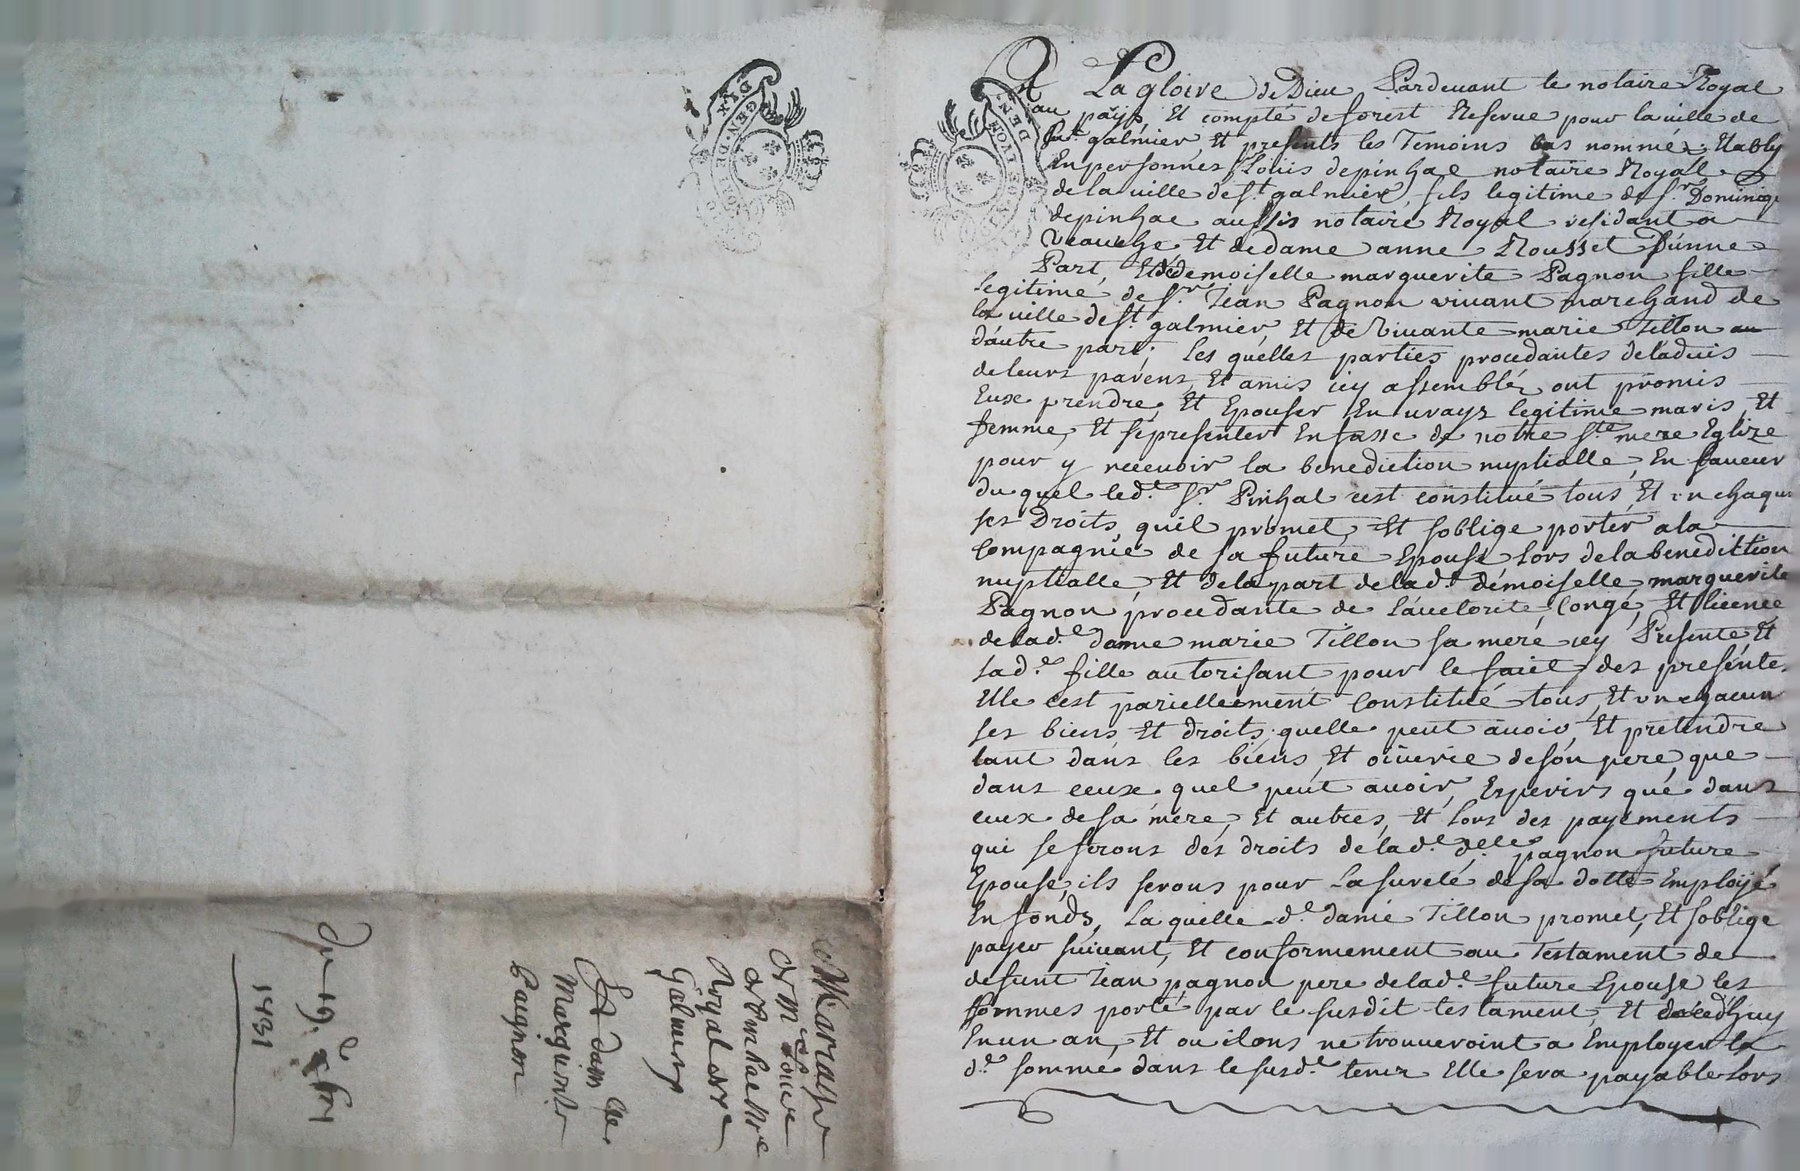 A La gloire de Dieu Pardevant le notaire Royal
au pays Et compté de forest Reservé pour la ville de
St galmier Et presents les Temoins bas nommés Etably
En personnes Louis depinhac notaire Royal
de la ville de St galmier, fils legitime de Sr Dominiq
depinhac aussis notaire Royal residant a
Veauche Et de dame anne Rousset D'unne
Part, Et demoiselle marguerite Pagnon fille
legitime de Sr Jean Pagnon vivant marchand de
la ville de St galmier, Et de vivante marie Tillon
d'autre part; les quelles parties procedantes de l'advis
de leurs parens Et amis icy assemblés ont promis
Eux prendre Et Epouser En vrays legitime maris Et
femme, Et se presenter En fasse de notre Ste mere Eglize
pour y recevoir la benediction nuptialle En faveur
du quel led.t Sr Pinhac c'est constitué tous Et un chaqun
ses Droits quil promet Et soblige porter a la
Compagnie de sa future Epouse lors de la benediction
nuptialle Et de la part de lad.e demoiselle marguerite
Pagnon procedante de l'autorité, Congé, Et licence
de lad.e dame marie Tillon sa mere icy Presente Et
sad.e fille autorisant pour le faict des presentes
Elle c'est pariellement Constitué tous Et un chacun
ses biens Et droits quelle peut avoir Et pretendre
tant dans les biens Et de son pere que
dans ceux quel peut avoir que dans
ceux de sa mere, Et autres, Et lors des payements
qui se feront des droits de lad.e d.elle pagnon future
Epouse, ils serons pour la sureté de sa dotte Employé
En fonds, la quelle d.e dame Tillon promet, Et soblige
payer suivant, Et conformement au Testament de
defunt Jean pagnon pere de lad.e future Epouse les
sommes porté par le susdit testament, Et
En un an, Et ou ilons ne trouveroint a Employer la
d.e somme dans le susd.t tems Elle sera payable lors
Mariage
de Mr Louis
depinhac nore
Royal de St
Galmier
Et dam lle
Marguerite
Pagnon
Du 19e
1731
GEN. DE
LYON
DE LYON